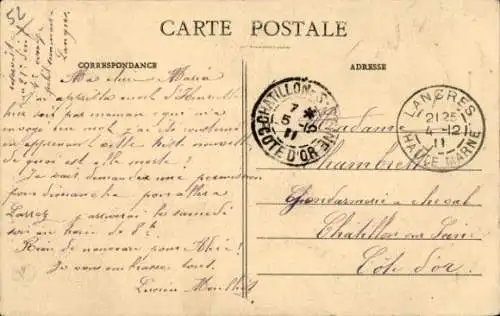 52
CARTE POSTALE
CORRESPONDANCE
ADRESSE
Ma chère Maria
J'ai appris la mort d'Henriette
hier soir par maman qui m'a
envoyé un mot, j'ai été
en apprenant cette triste nouvelle
de quoi est elle morte!
Je vais demander une permission
pour dimanche pour aller à
j'arriverai le samedi
soir au train de 8h.
Rien de nouveau pour
Je vous embrasse tous.
Lucien
CHATILLON-S-SEINE
7
5 -12
11
COTE D'OR
LANGRES
21 25
4 -12
11
HAUTE MARNE
Madame
Chambrette
Gendarmerie à cheval
Châtillon sur Seine
Côte d'or